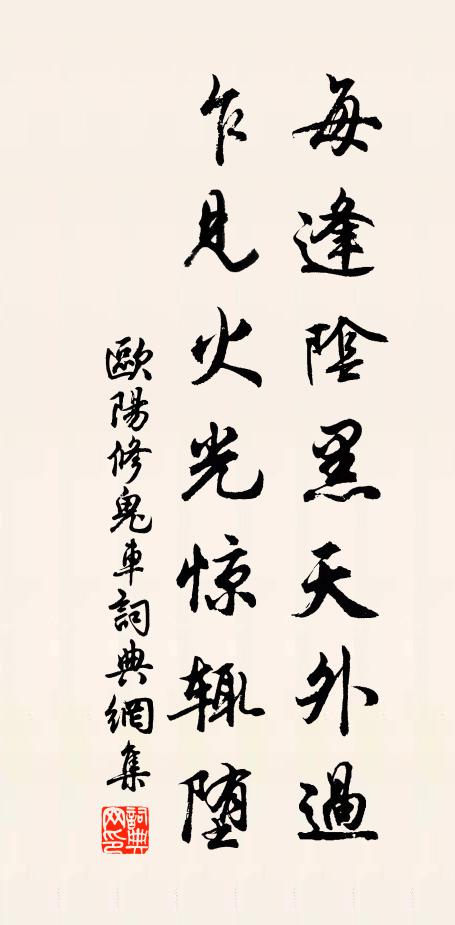 每逢陰黑天外過
乍見火光惊辄堕
歐陽修鬼車詞典網集
詞典网印